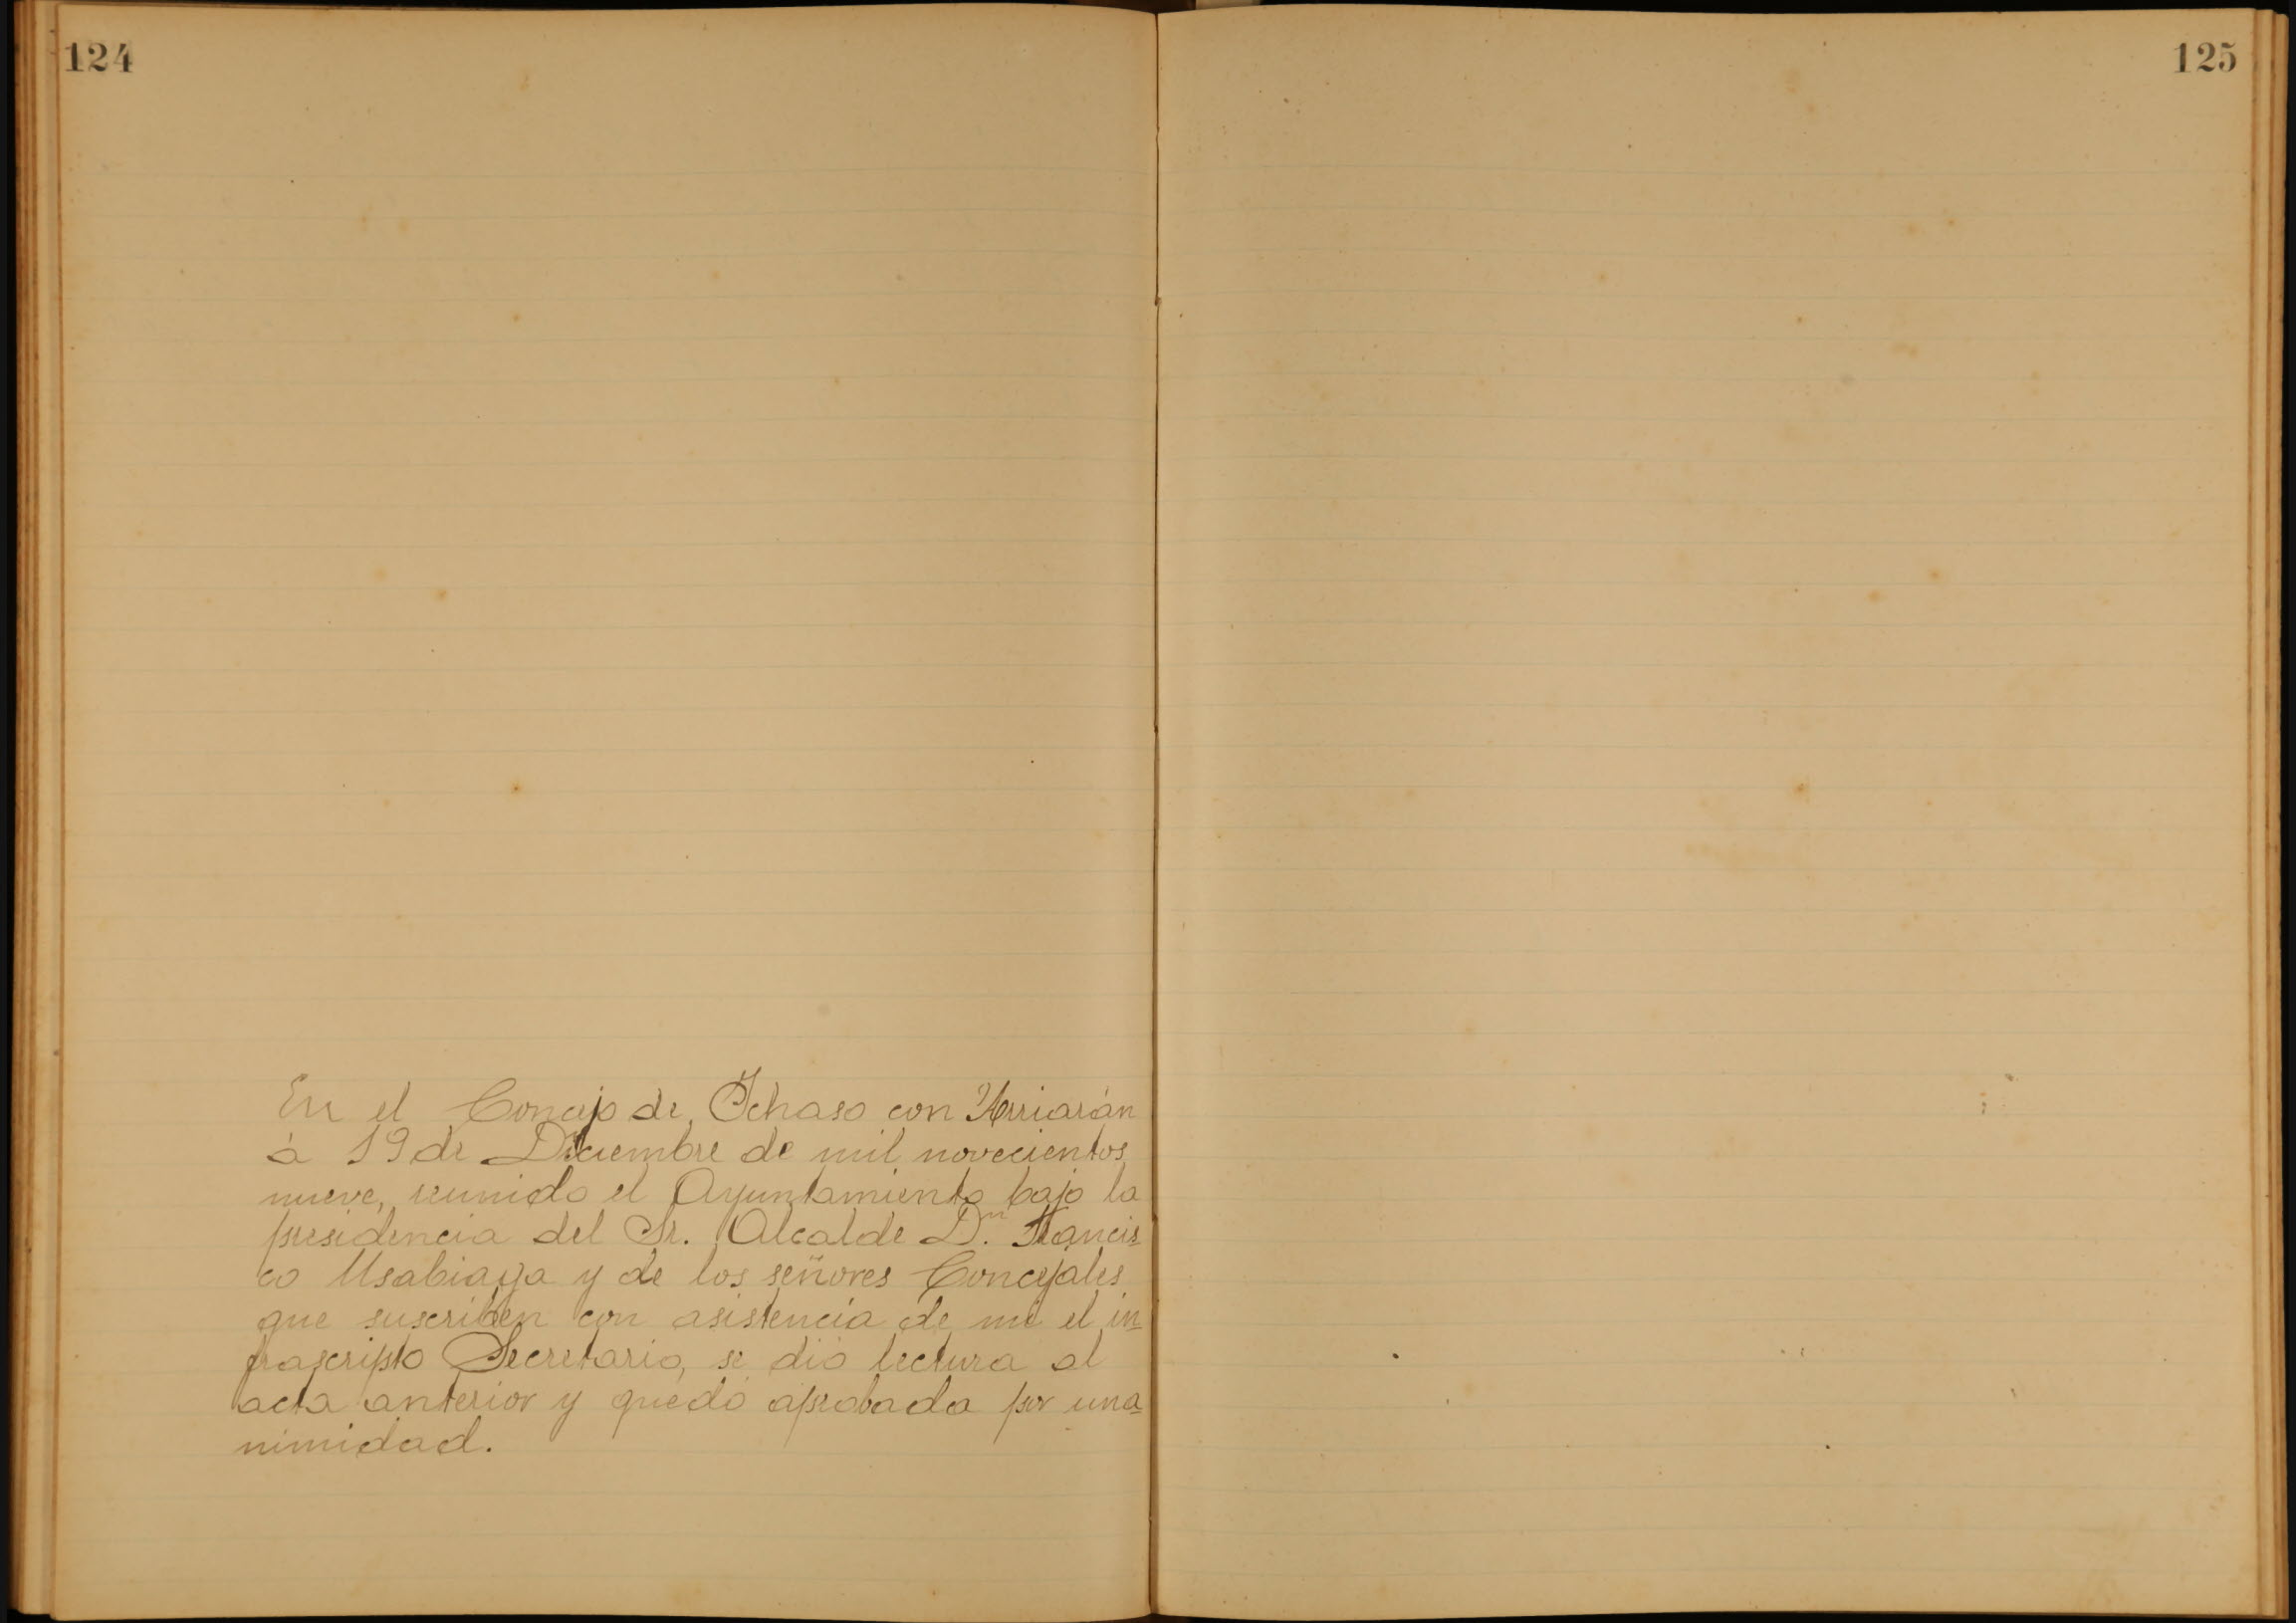 124
En el Concejo de Ichaso con Arriarán
à 19 de Diciembre de mil novecientos
nueve, reunido el Ayuntamiento bajo la
presidencia del Sr. Alcalde D.ⁿ Francis=
co Usabiaga y de los señores Concejales
que suscriben con asistencia de mi el in=
frascripto Secretario, se dió lectura al
acta anterior y quedó aprobada por una=
nimidad.
125